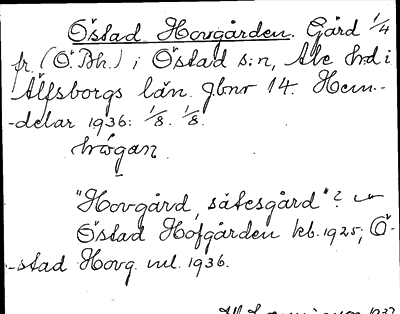 Östad Hovgården. Gård 1/4
fr. (Ö Bh.) i Östad s:n, Ale hd i
Älfsborgs län. Jbnr 14. Hem-
-delar 1936: 1/8. 1/8.
"Hovgård, sätesgård"?
Östad Hofgården kb. 1925; Ö-
-stad Hovg. ml. 1936.
1937